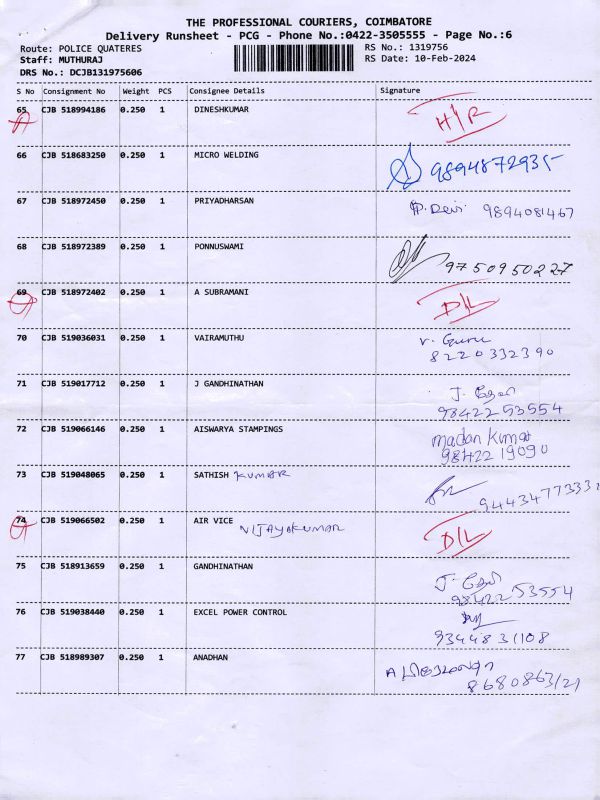 THE PROFESSIONAL COURIERS, COIMBATORE
Delivery Runsheet - PCG - Phone No.:0422-3505555 - Page No.:6
Route: POLICE QUATERES
RS No.: 1319756
Staff: MUTHURAJ
RS Date: 10-Feb-2024
DRS No.: DCJB131975606
S No Consignment No Weight PCS Consignee Details Signature
65 CJB 518994186 0.250 1 DINESHKUMAR
66 CJB 518683250 0.250 1 MICRO WELDING 9894872935
67 CJB 518972450 0.250 1 PRIYADHARSAN P. Devi 9894081467
68 CJB 518972389 0.250 1 PONNUSWAMI 9750950227
69 CJB 518972402 0.250 1 A SUBRAMANI D/L
70 CJB 519036031 0.250 1 VAIRAMUTHU V. Guru
8220332390
71 CJB 519017712 0.250 1 J GANDHINATHAN
9842253554
72 CJB 519066146 0.250 1 AISWARYA STAMPINGS Madan Kumar
9842219090
73 CJB 519048065 0.250 1 SATHISH KUMAR
74 CJB 519066502 0.250 1 AIR VICE D/L
VIJAYAKUMAR
75 CJB 518913659 0.250 1 GANDHINATHAN
9842253554
76 CJB 519038440 0.250 1 EXCEL POWER CONTROL
9344831108
77 CJB 518989307 0.250 1 ANADHAN
8680863121